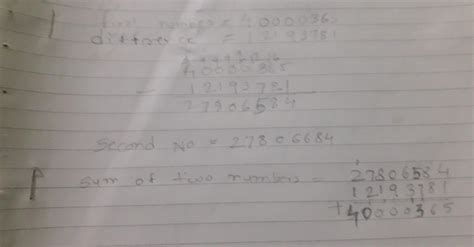 first number = 40000365
difference = 12193781
40000365
- 12193781
27806584
Second No = 27806684
Sum of two numbers = 27806584
12193781
+ 40000365